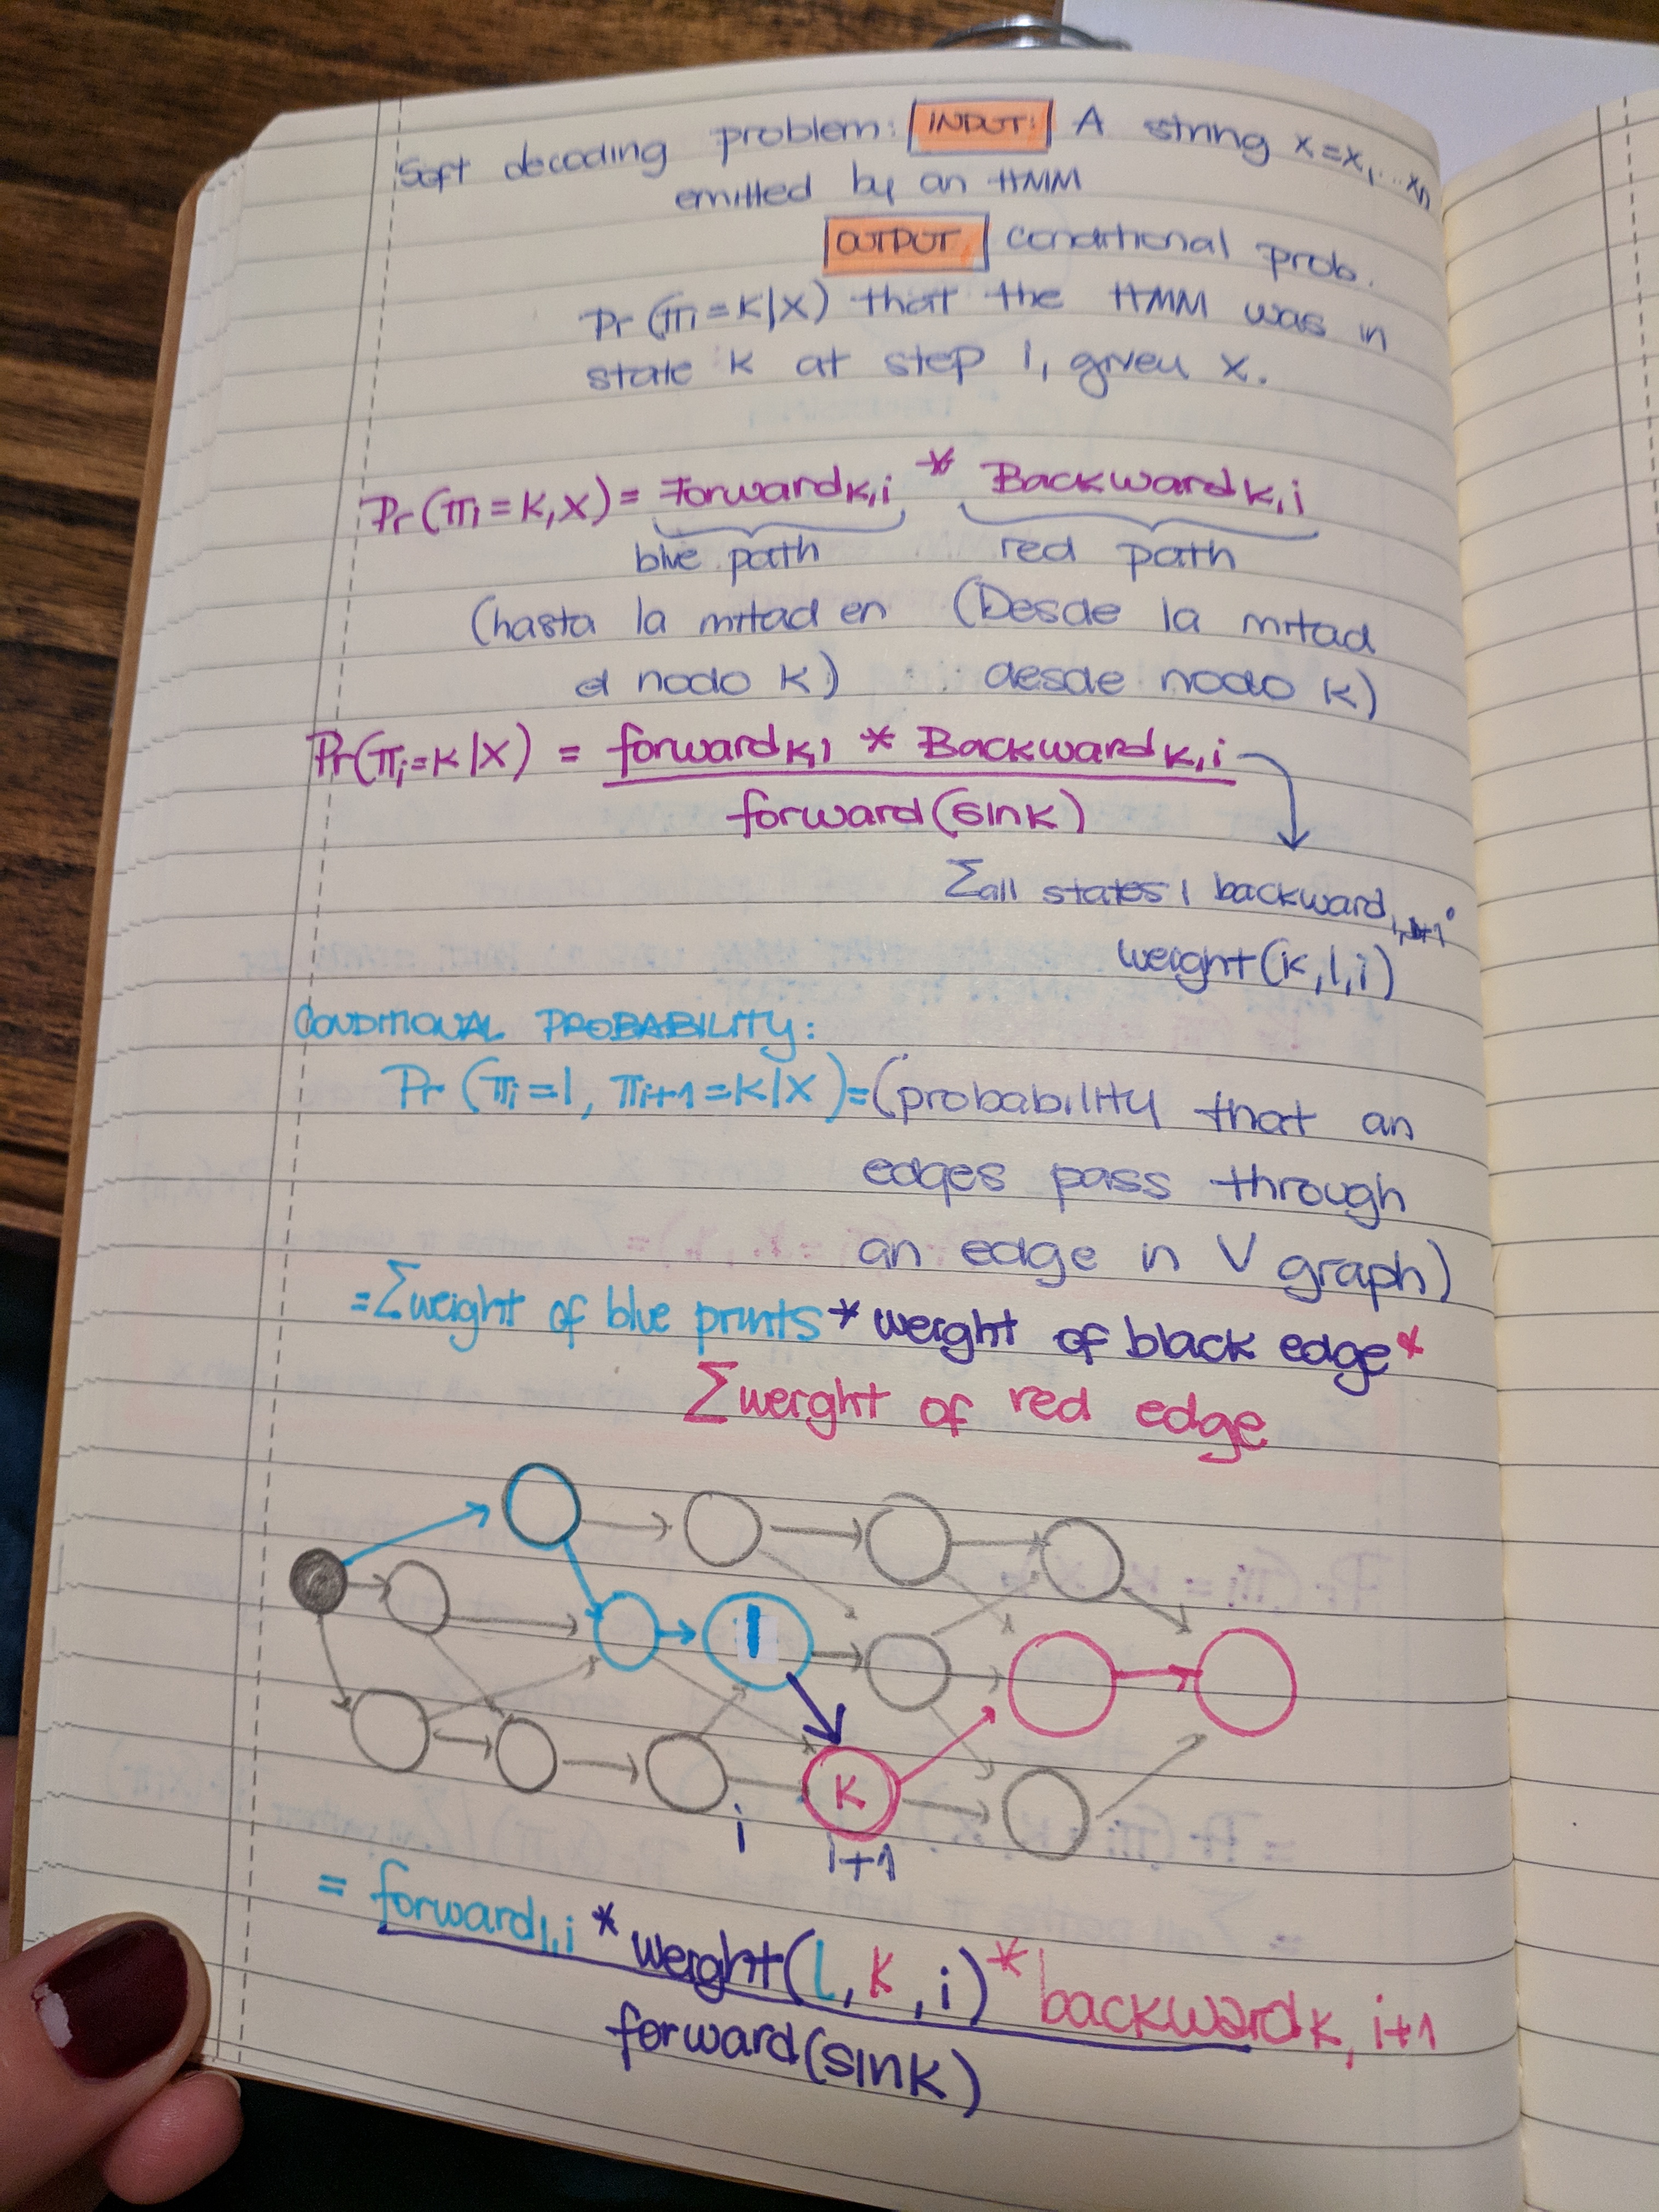 Soft decoding problem: INPUT: A string x=x₁...xₙ
emitted by an HMM
OUTPUT conditional prob.
Pr(πi=K|X) that the HMM was in
state K at step i, given X.
Pr(πi=K,X) = Forward K,i * Backward K,i
blue path red path
(hasta la mitad en (Desde la mitad
el nodo K) desde nodo K)
Pr(πi=K|X) = forward K,i * Backward K,i
forward(sink)
Σ all states l backward l,i+1 ·
weight(K,l,i)
CONDITIONAL PROBABILITY:
Pr(πi=l, πi+1=K|X)=(probability that an
edges pass through
an edge in V graph)
=Σweight of blue prints * weight of black edge *
Σweight of red edge
l
K
i
i+1
= forward l,i * weight(l,K,i) * backward K,i+1
forward(sink)